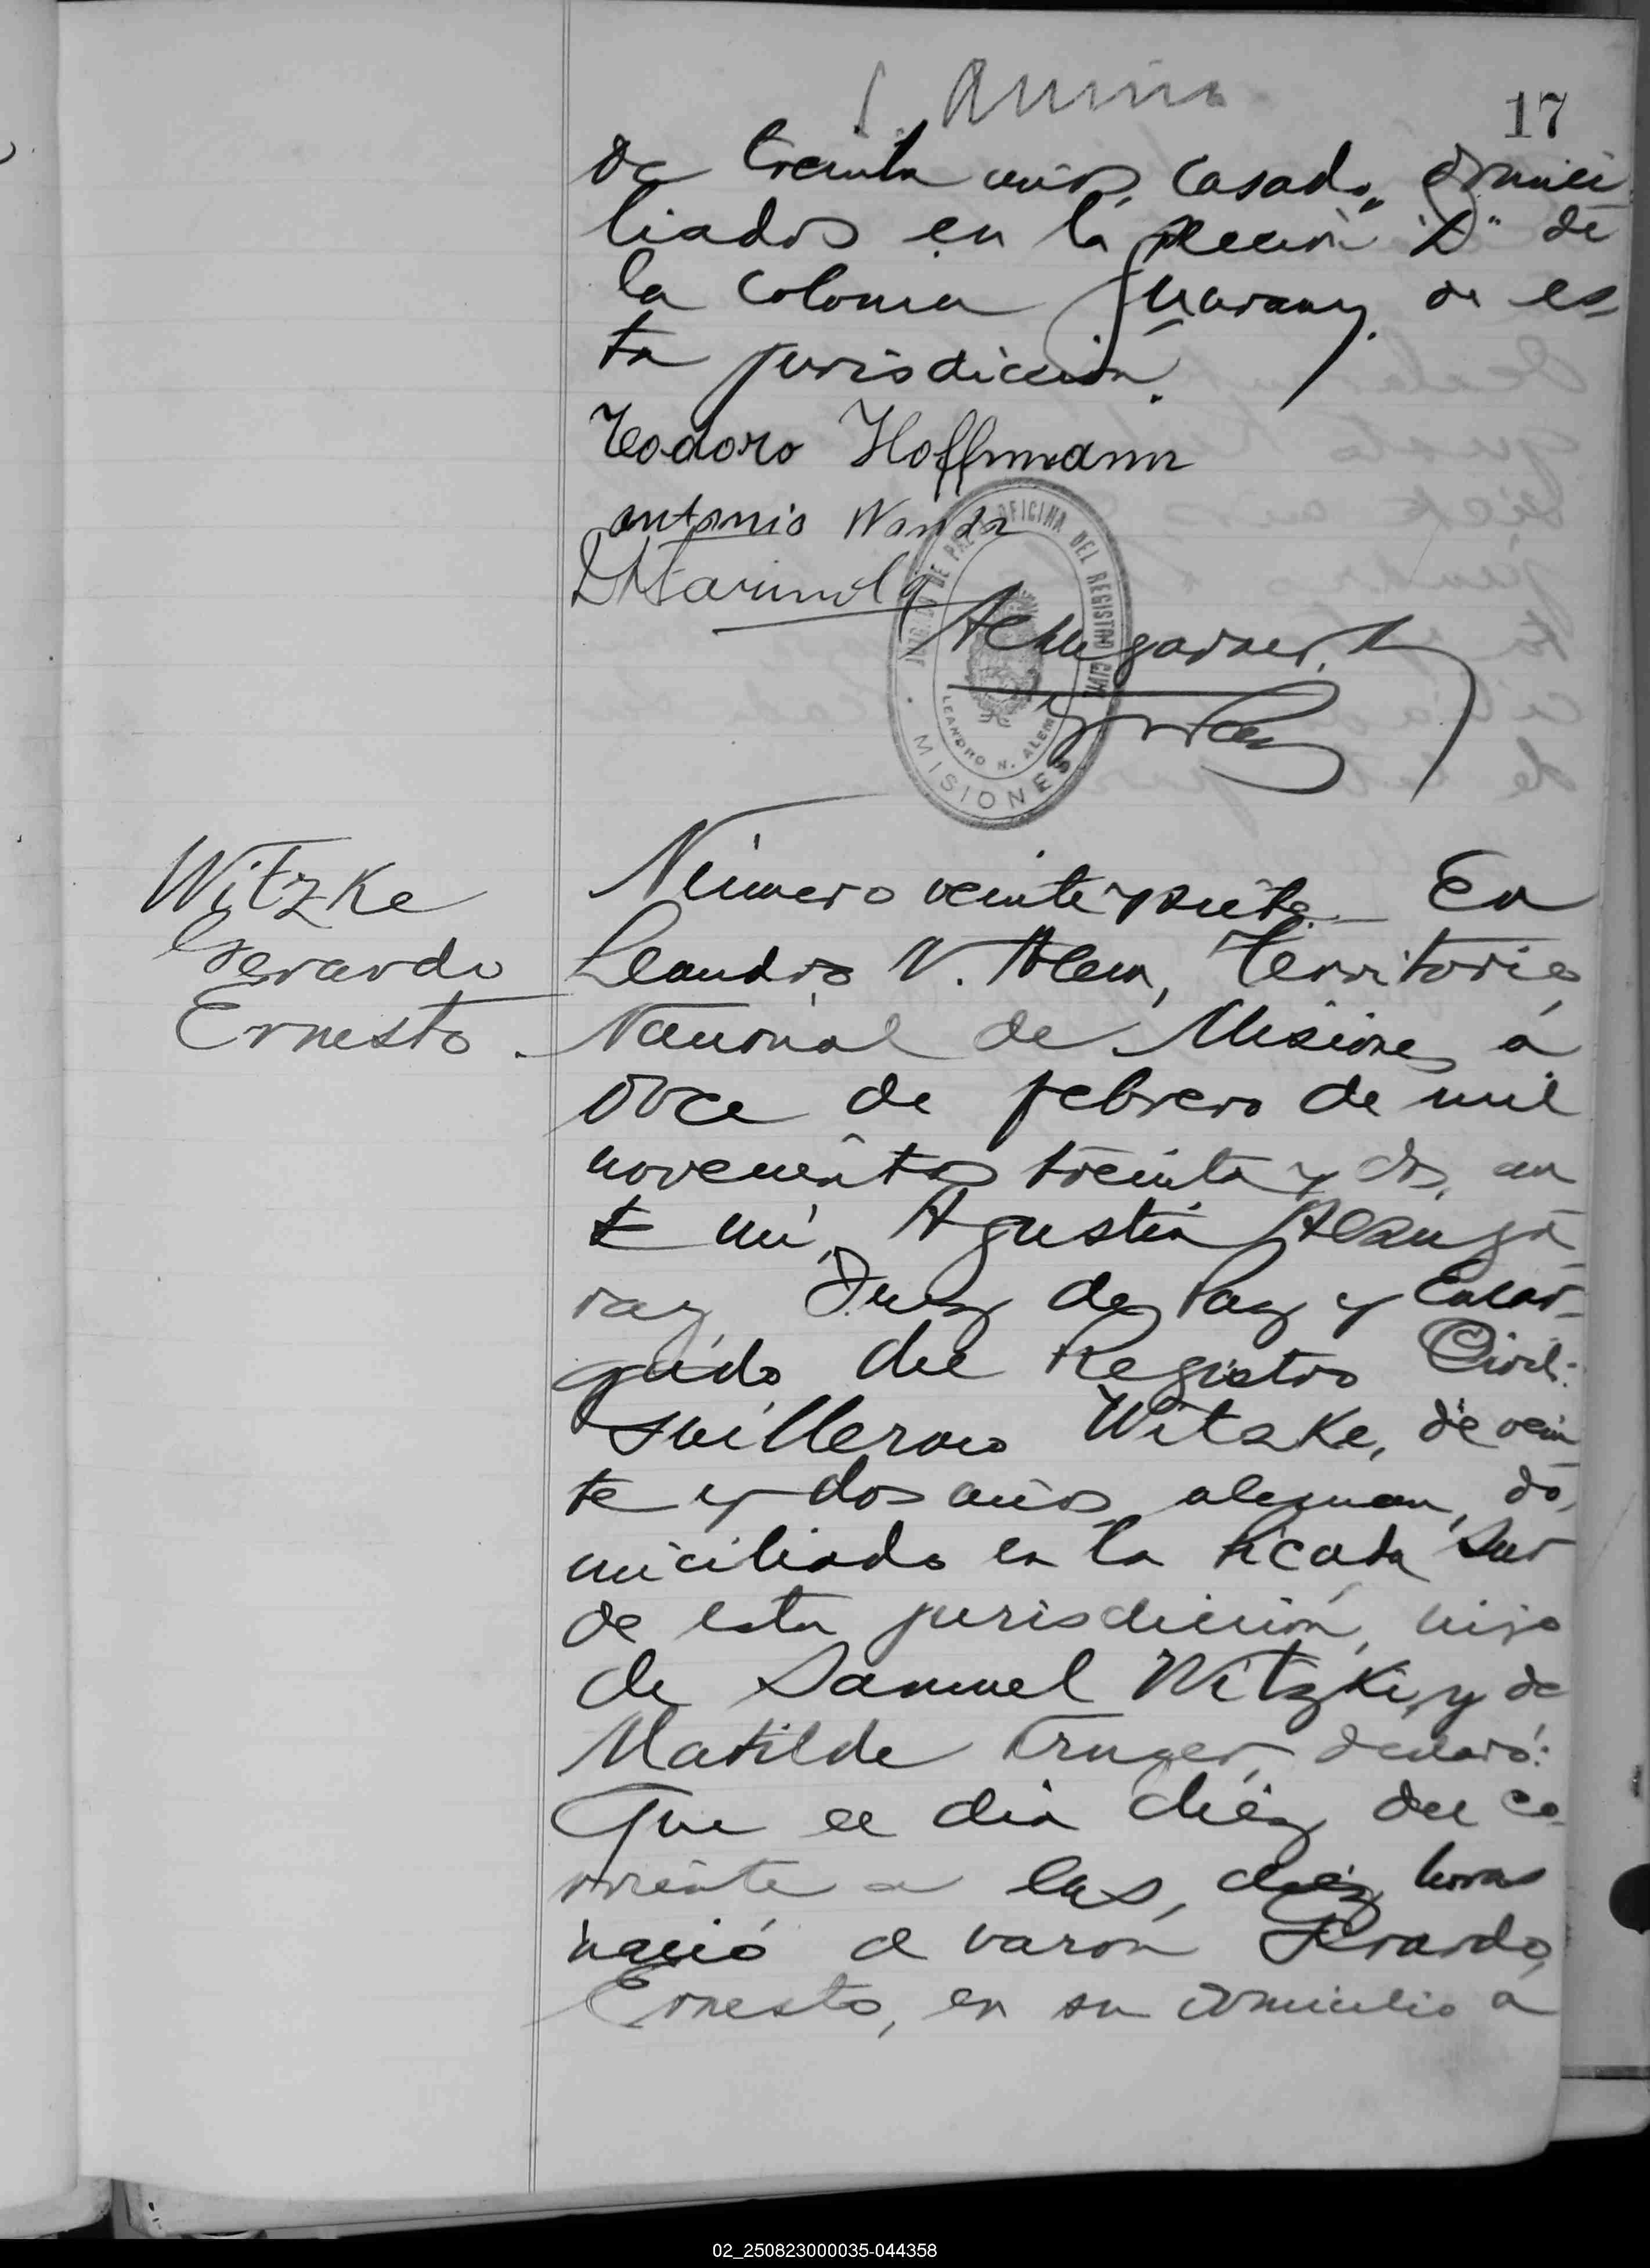 17
de treinta años, casado, domici
liados en la sección "D" de
la colonia Guarany de es-
ta jurisdicción.
Teodoro Hoffmann
antonio Wanda
JUZGADO DE PAZ OFICINA DEL REGISTRO CIVIL
LEANDRO N. ALEM
MISIONES
Witzke
Gerardo
Ernesto
Número veinte y siete. En
Leandro N. Alem, Territorio
Nacional de Misiones, á
doce de febrero de mil
novecientos treinta y dos, an
te mi, Agustin Alzuga
ray Juez de Paz y Encar-
gado del Registro Civil:
Guillermo Witzke, de vein
te y dos años, aleman, do
miciliado en la Picada Sur
de esta jurisdicción, hijo
de Samuel Witzke, y de
Matilde Kruger, declaró:
Que el dia diéz del co-
rriente a las, diéz horas
nació el varón Gerardo
Ernesto, en su domicilio a
02_250823000035-044358